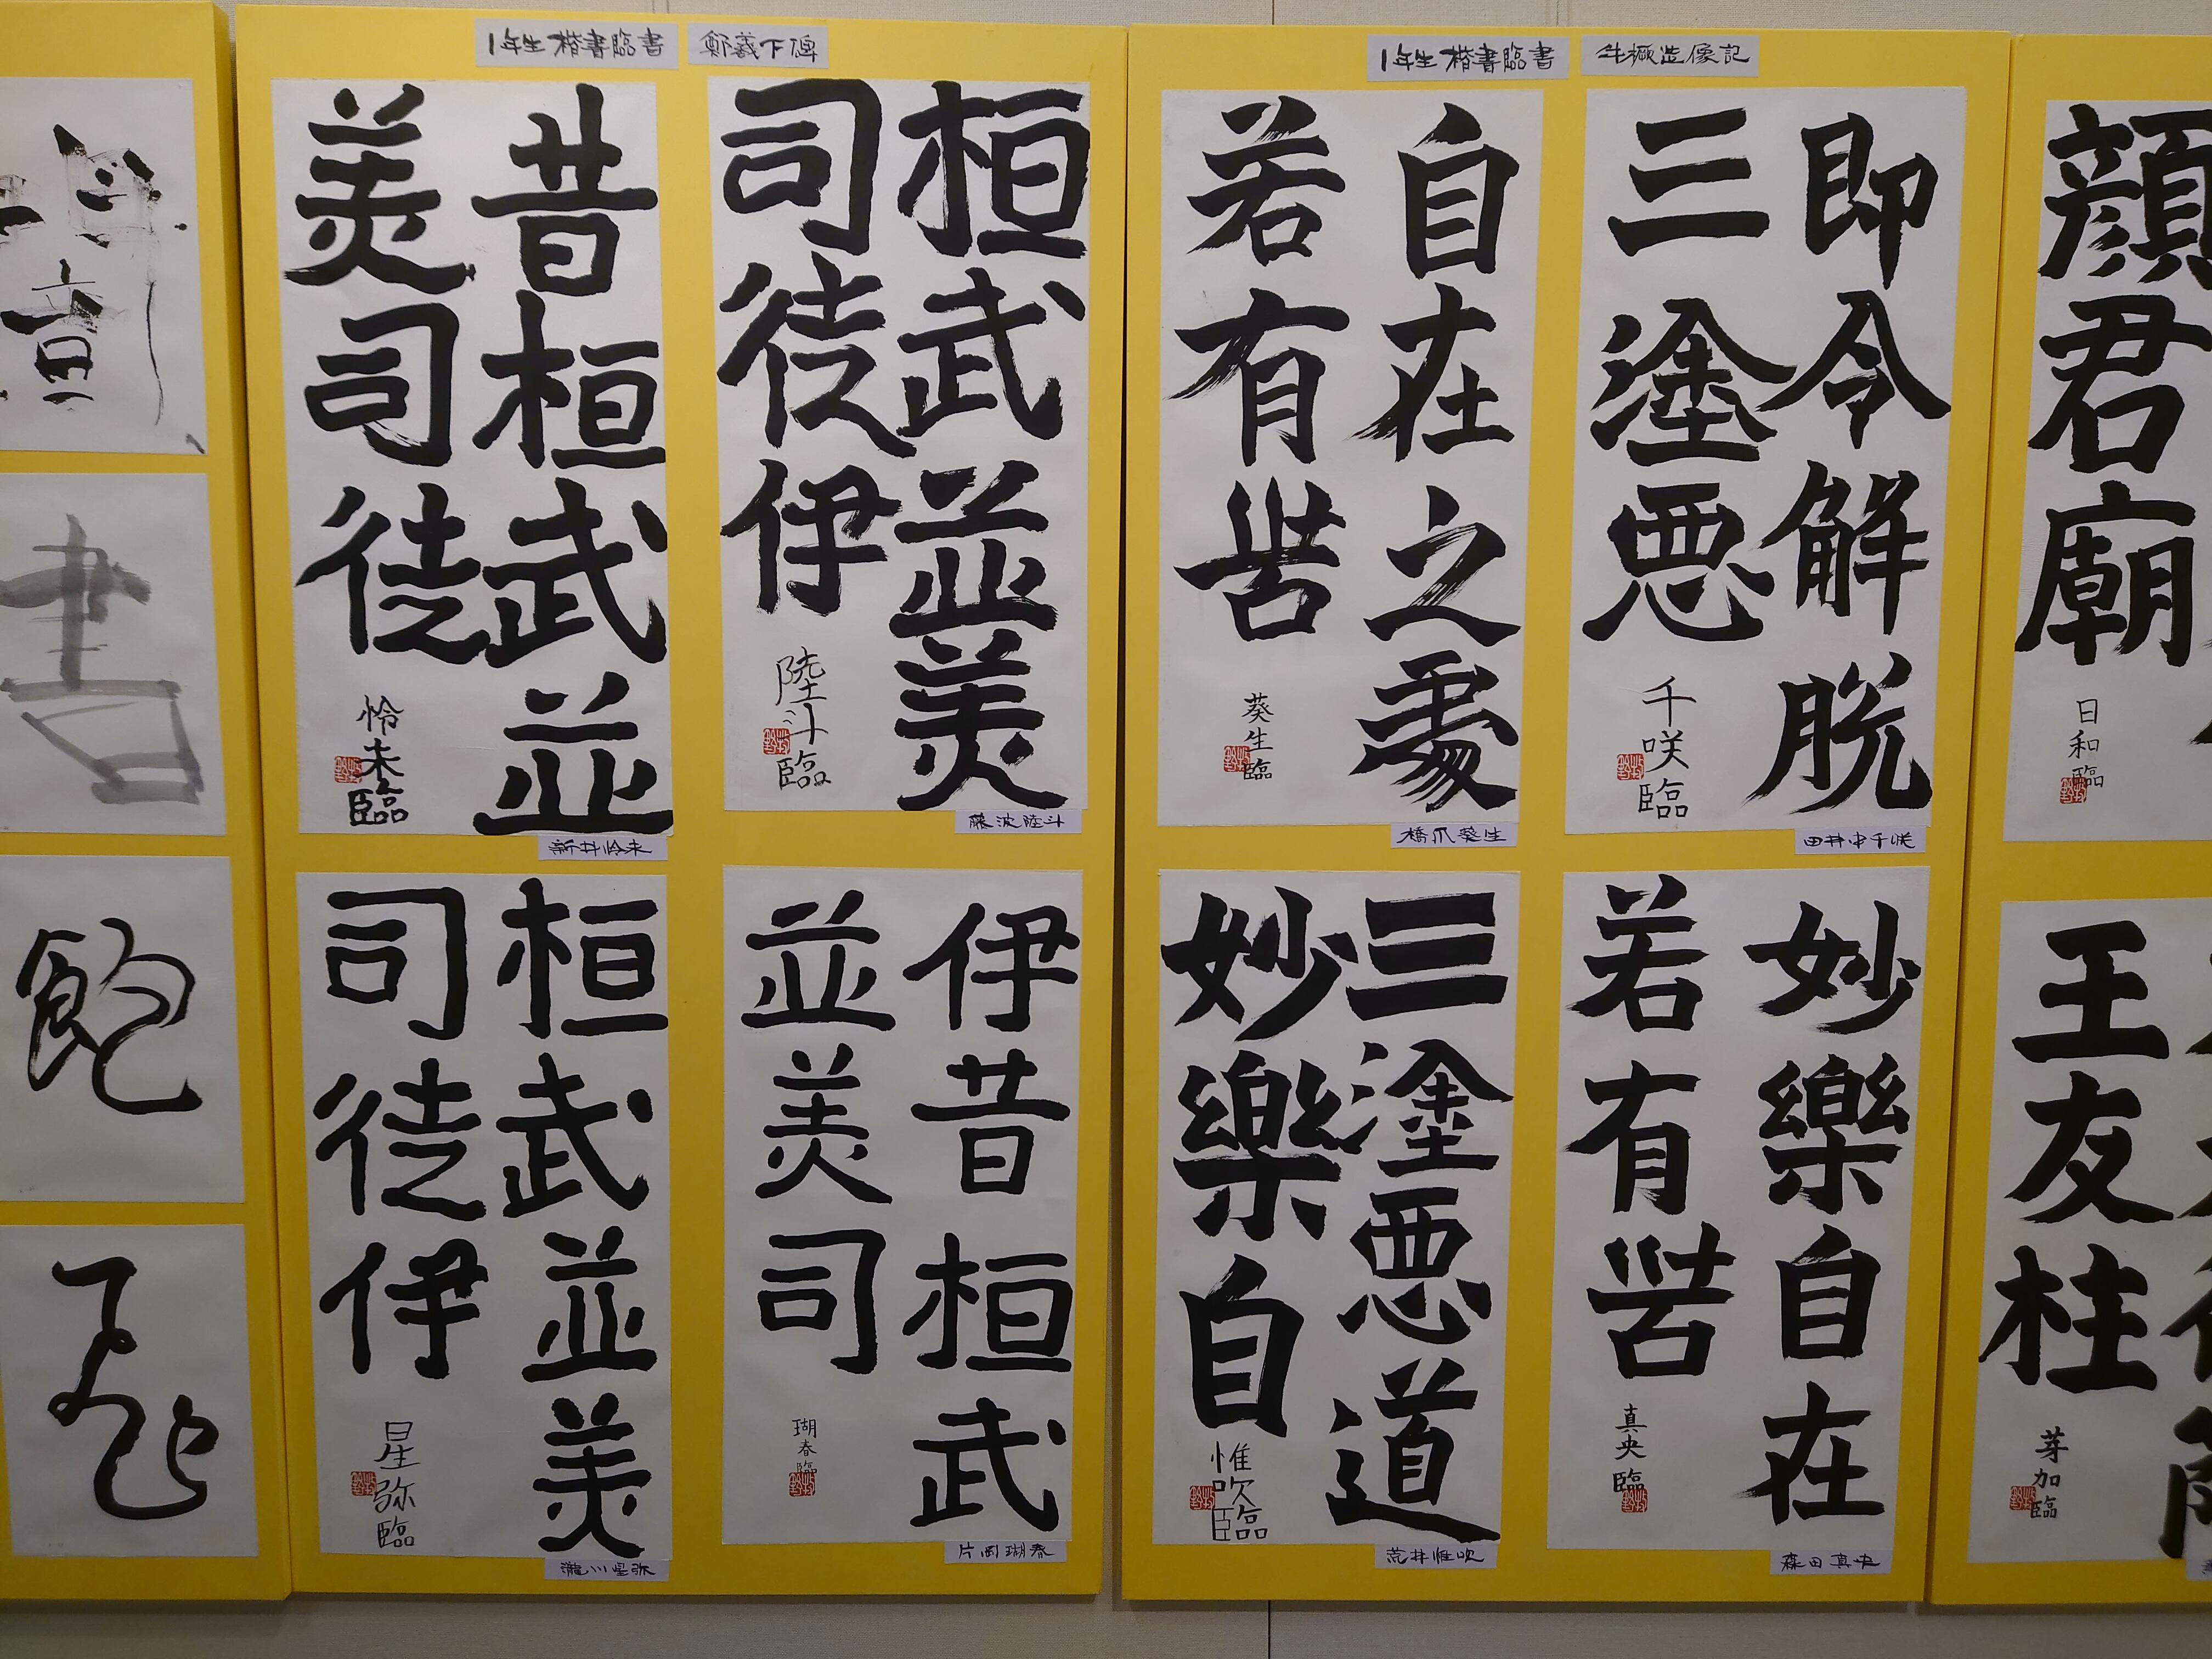 書
飽
飛
1年生 楷書臨書
鄭羲下碑
昔桓武並
美司徒
怜未臨
新井怜未
桓武並美
司徒伊
陸斗臨
藤波陸斗
桓武並美
司徒伊
星弥臨
瀧川星弥
伊昔桓武
並美司
瑚春臨
片岡瑚春
1年生 楷書臨書
牛橛造像記
自在之處
若有苦
葵生臨
橋爪葵生
即令解脱
三塗悪
千咲臨
田井中千咲
三塗悪道
妙樂自
惟吹臨
荒井惟吹
妙樂自在
若有苦
真央臨
森田真央
顔君廟
日和臨
王友柱
芽加臨